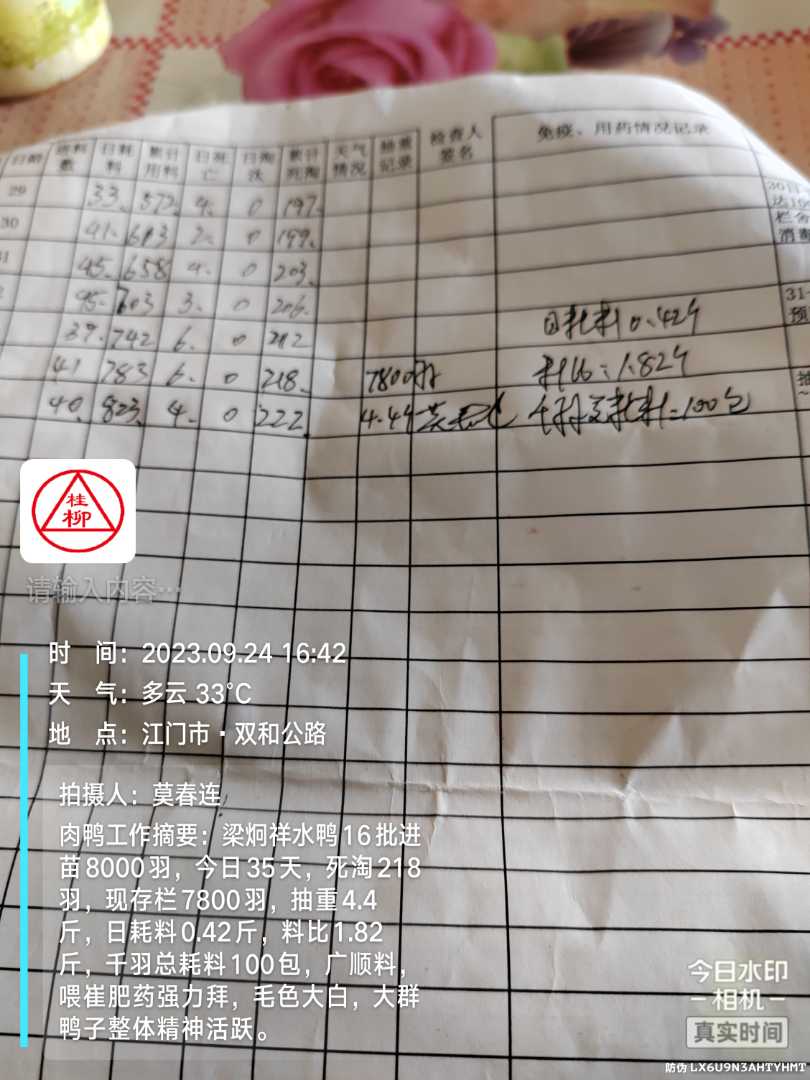 日龄 饲料数 日耗料 累计用料 日死亡 日淘汰 累计死淘 天气情况 抽重记录 检查人签名 免疫、用药情况记录
29 33. 572. 4. 0 197.
30 41. 613 2. 0 199.
31 45. 658 4. 0 203.
45. 703 3. 0 206.
39. 742 6. 0 212
41 783 6. 0 218. 7800羽
40. 823. 4. 0 222. 4.4斤
日耗料0.42斤
料比:1.82斤
千羽总耗料=100包
30日
消毒
31-
预
抽
桂柳
请输入内容…
时 间:2023.09.24 16:42
天 气:多云 33℃
地 点:江门市·双和公路
拍摄人:莫春连
肉鸭工作摘要:梁炯祥水鸭16批进
苗8000羽,今日35天,死淘218
羽,现存栏7800羽,抽重4.4
斤,日耗料0.42斤,料比1.82
斤,千羽总耗料100包,广顺料,
喂崔肥药强力拜,毛色大白,大群
鸭子整体精神活跃。
今日水印
相机
真实时间
防伪 LX6U9N3AHTYHMT